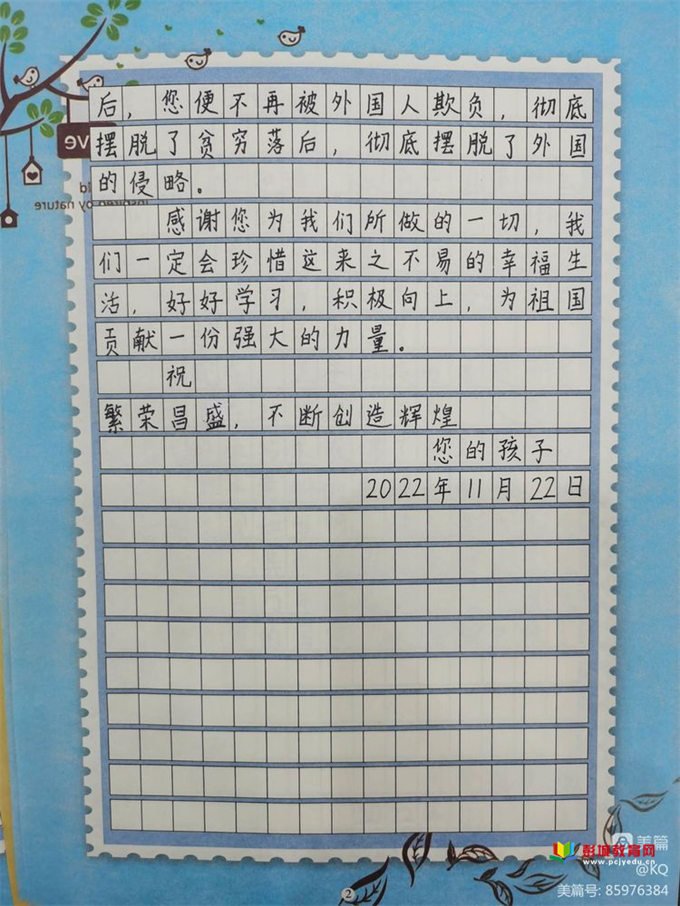 后，您便不再被外国人欺负，彻底
摆脱了贫穷落后，彻底摆脱了外国
的侵略。
感谢您为我们所做的一切，我
们一定会珍惜这来之不易的幸福生
活，好好学习，积极向上，为祖国
贡献一份强大的力量。
祝
繁荣昌盛，不断创造辉煌
您的孩子
2022年11月22日
2
美篇
彭城教育网
www.pcjyedu.cn
@KQ
美篇号: 85976384